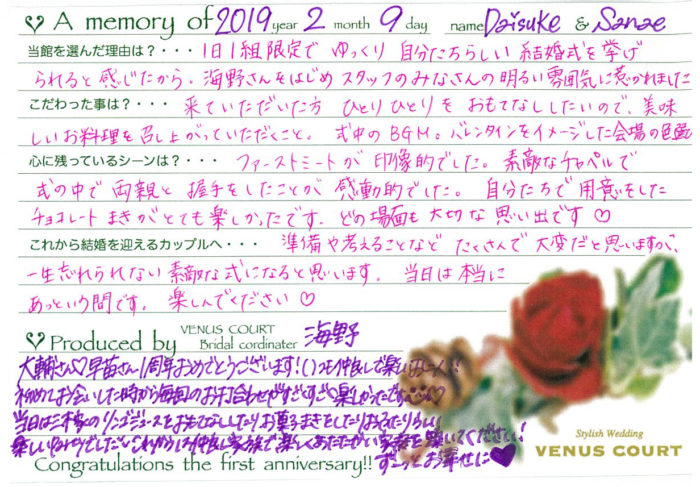 A memory of 2019 year 2 month 9 day name Daisuke & Sanae
当館を選んだ理由は？・・・ 1日1組限定で ゆっくり 自分たちらしい 結婚式を挙げ
られると感じたから。海野さんをはじめ スタッフのみなさんの明るい雰囲気に惹かれました
こだわった事は？・・・ 来ていただいた方 ひとりひとりを おもてなししたいので、美味
しいお料理を召し上がっていただくこと。 式中のBGM。バレンタインをイメージした会場の色
心に残っているシーンは？・・・ ファーストミートが 印像的でした。素敵なチャペルで
式の中で 両親と 握手をしたことが 感動的でした。 自分たちで用意をした
チョコレートまきがとても楽しかったです。どの場面も大切な思い出です♡
これから結婚を迎えるカップルへ・・・ 準備や考えることなど たくさんで 大変だと思いますが、
一生忘れられない素敵な式になると思います。 当日は本当に
あっという間です。 楽しんでください♡
Produced by VENUS COURT Bridal cordinater 海野
大輔さん♡早苗さん1周年おめでとうございます!いつも仲良しで楽しい
初めてお会いした時から毎回のお打合わせがすごーく楽しかったです
当日は のリンゴジュースをおもてなししたりお菓子まきをしたり
楽しい でした これからも仲良し家族で楽しくあたたかい家庭を築いてください!
Congratulations the first anniversary!! ずーっとお幸せに♥
Stylish Wedding
VENUS COURT